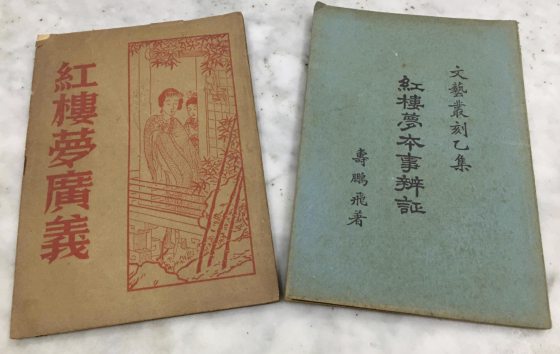 紅樓夢廣義
文藝叢刻乙集
紅樓夢本事辨証
壽鵬飛著